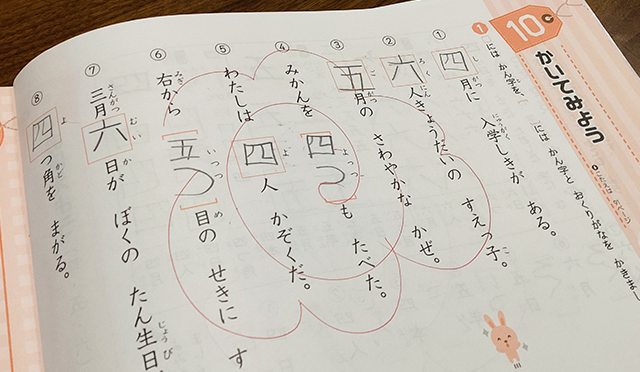 10
かいてみよう
1
には かん字を、
には かん字と おくりがなを かきまし
① 四月に 入学しきが ある。
② 六人きょうだいの すえっ子。
③ 五月の さわやかな かぜ。
④ みかんを 四つも たべた。
⑤ わたしは 四人 かぞくだ。
⑥ 右から 五つ目の せきに す
⑦ 三月六日が ぼくの たん生日
⑧ 四つ角を まがる。